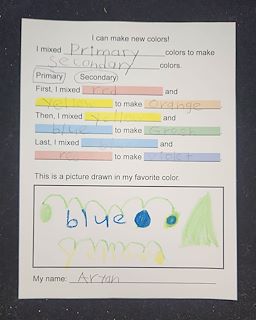 I can make new colors!
I mixed Primary colors to make
Secondary colors.
Primary Secondary
First, I mixed red and
yellow to make orange
Then, I mixed yellow and
blue to make Green
Last, I mixed blue and
red to make violet
This is a picture drawn in my favorite color.
blue
My name: Aryan